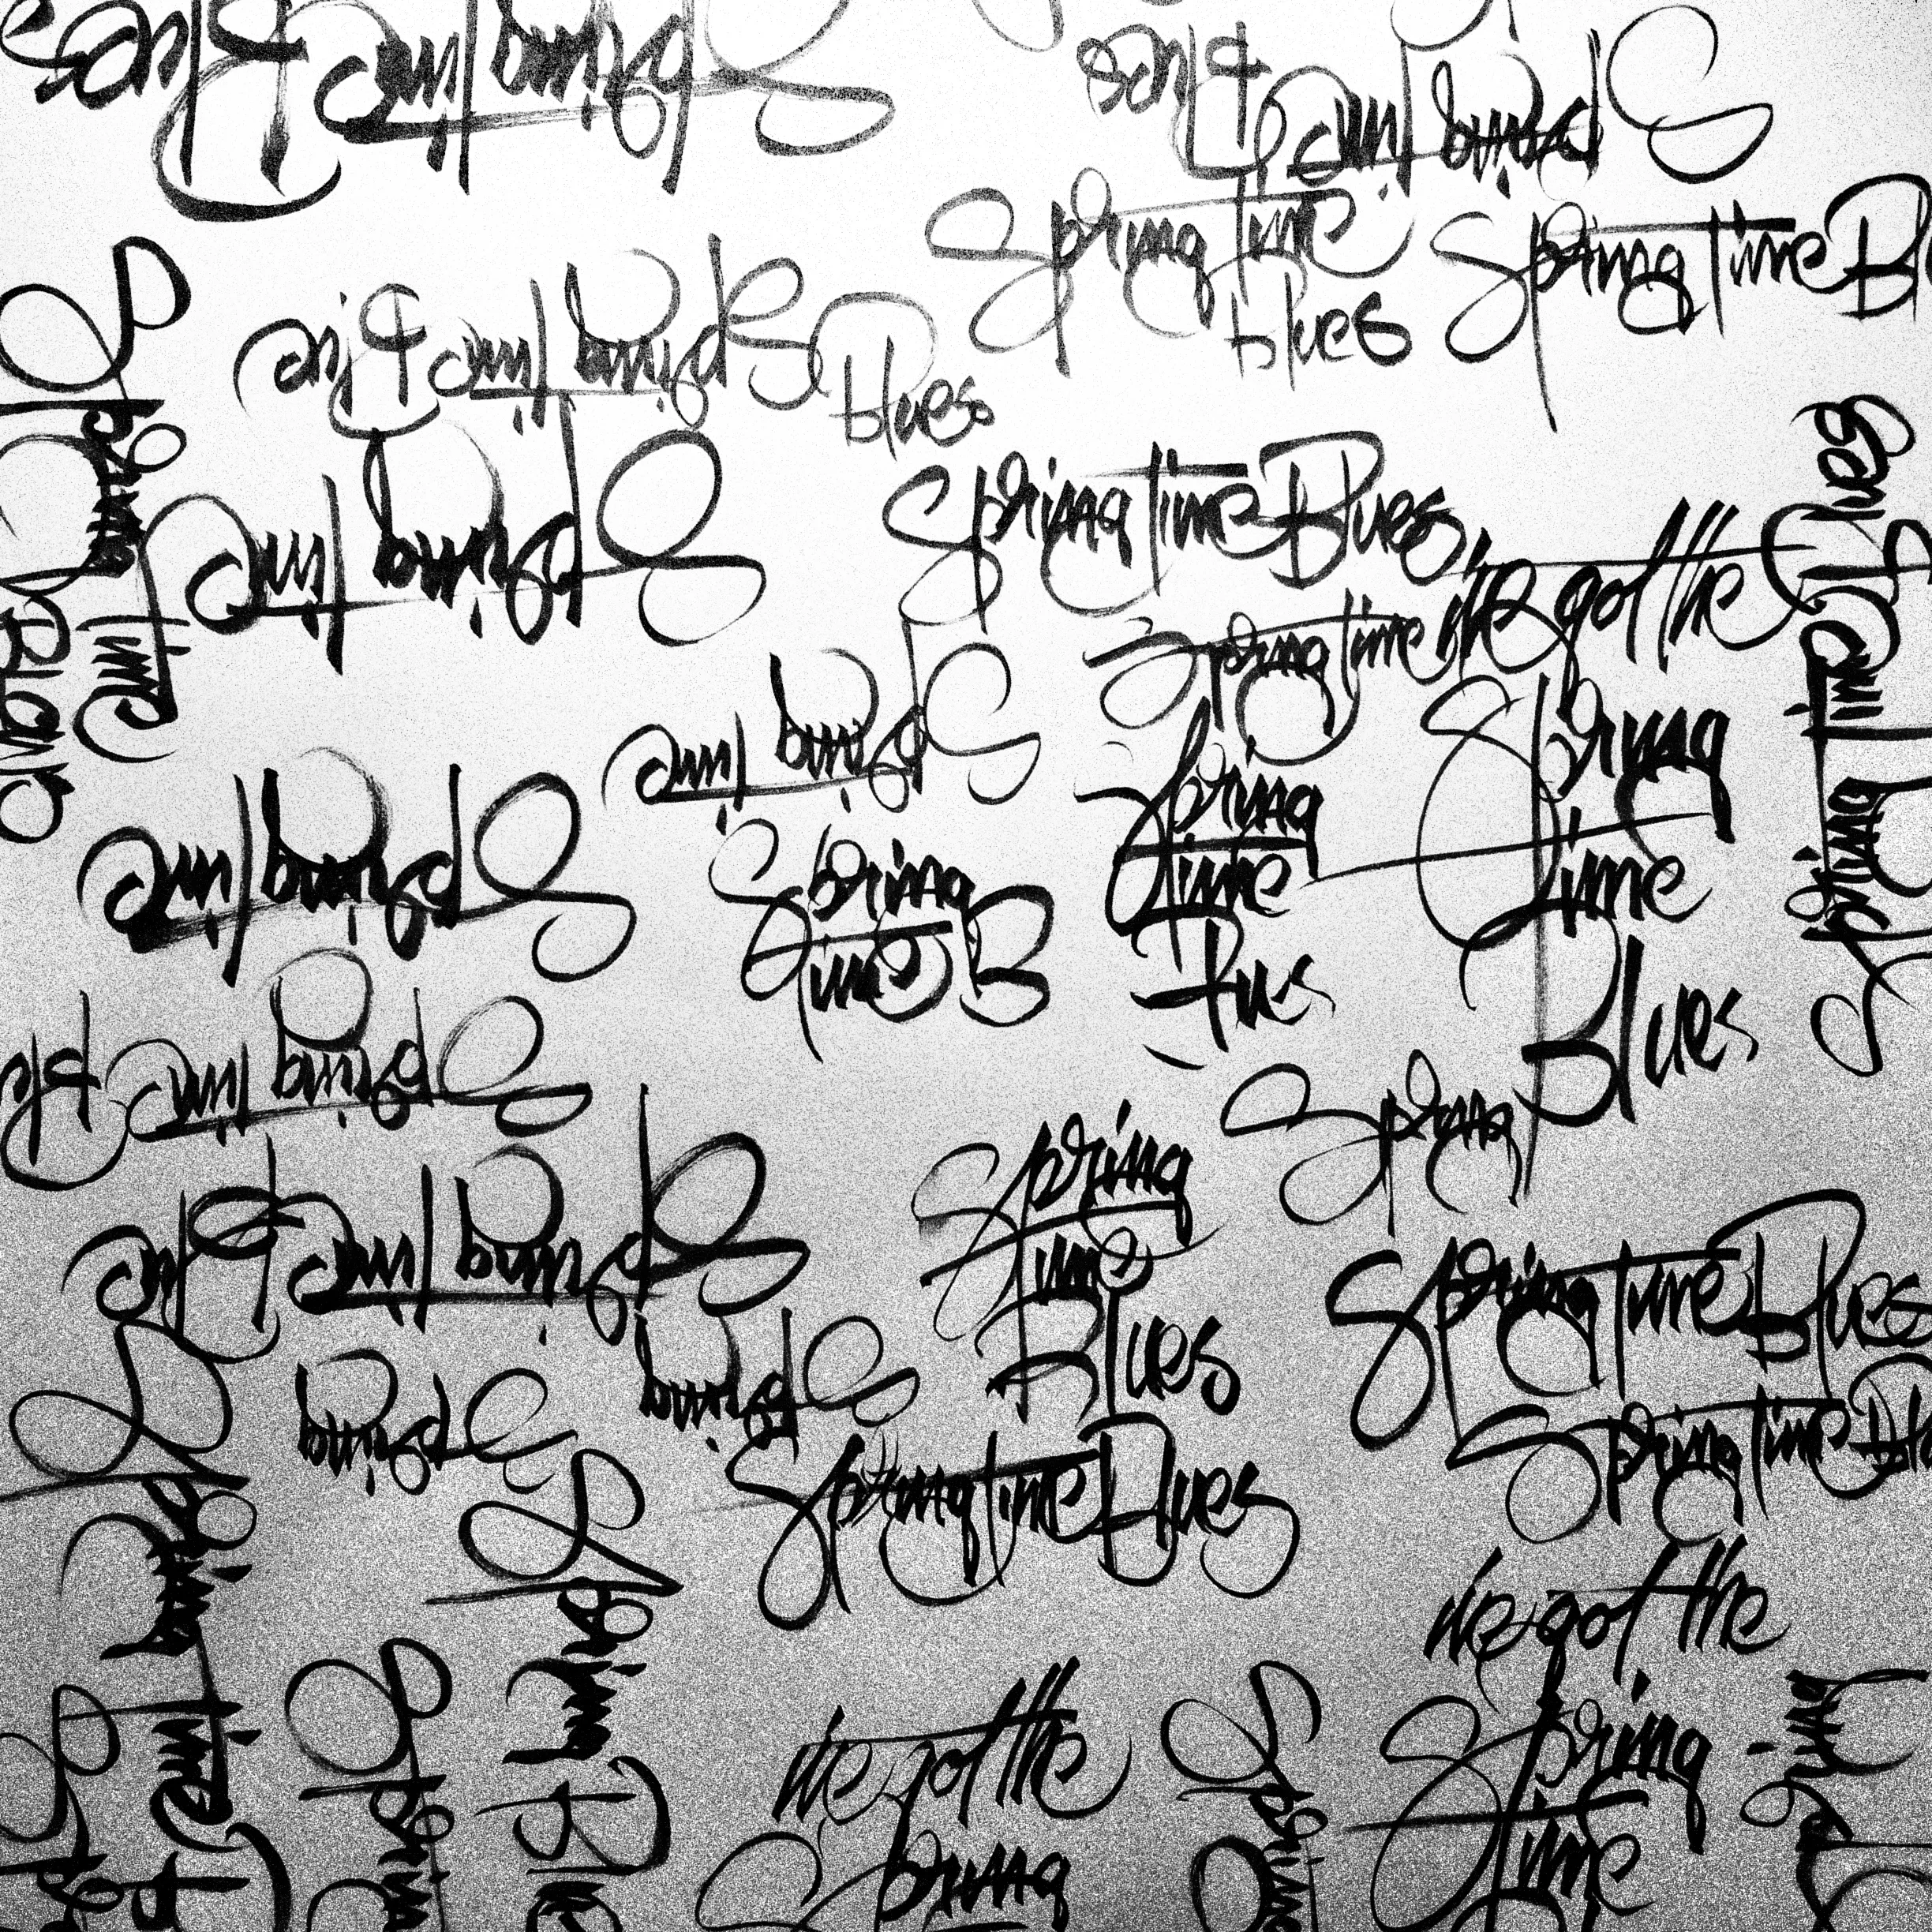 Spring time Blues
Spring time Blues
Spring time
blues
Spring time Bl
Spring time Blue
blues
Spring time
Spring time Blues
we got the
Spring time
Spring time
Spring time Blues
Spring time
Spring
time
Blues
Spring
time
Blues
Spring
time B
Spring time
Spring time Blu
Spring
Spring time Blue
Spring
time
Blues
Spring time Blues
Spring
Spring
Spring time Blues
Spring time Blu
we got the
Spring
time
we got the
Spring
Spring time
Spring
Spring Blu
Spring
Spring